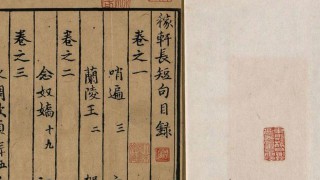 稼軒長短句目錄
卷之一
哨遍 三
卷之二
蘭陵王 二
念奴嬌 十九
卷之三